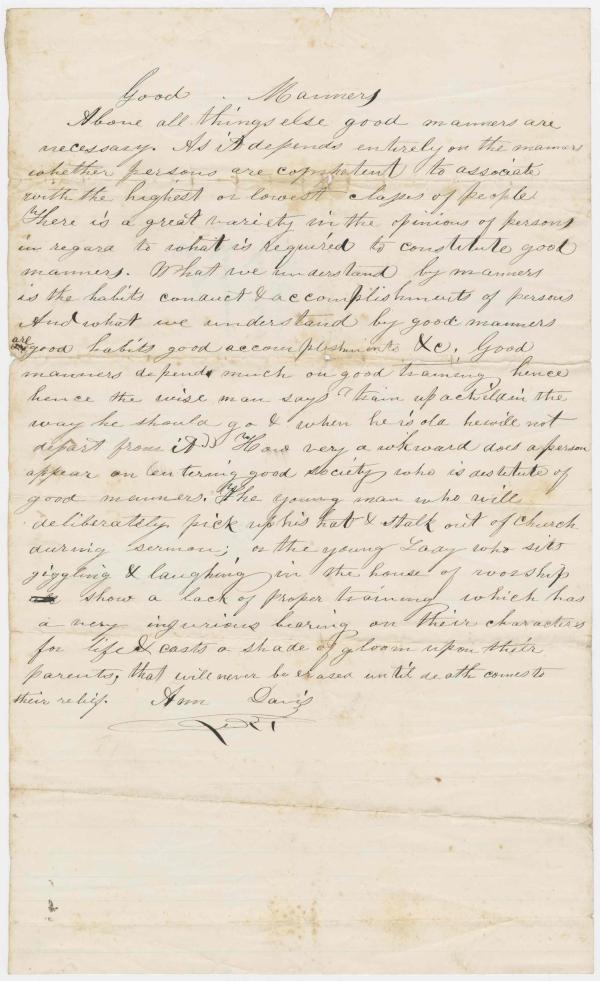 Good . Manners
Above all things else good manners are
necessary. As it depends entirely on the manners
whether persons are compatent to associate
with the highest or lowest classes of people
There is a great variety in the opinions of persons
in regard to what is required to constitute good
manners. What we understand by manners
is the habits conduct & accomplishments of persons
And what we understand by good manners
are good habits good accomplishments &c. Good
manners depend much on good training, hence
hence the wise man says "train up a child in the
way he should go & when he is old he will not
depart from it" How very awkward does a person
appear on entering good society who is destitute of
good manners. The young man who will
deliberately pick up his hat & stalk out of church
during sermon; or the young Lady who sits
giggling & laughing in the house of worship
show a lack of proper training which has
a very injurious bearing on their characters
for life & casts a shade of gloom upon their
parents, that will never be erased until death comes to
their relief. Ann Davis